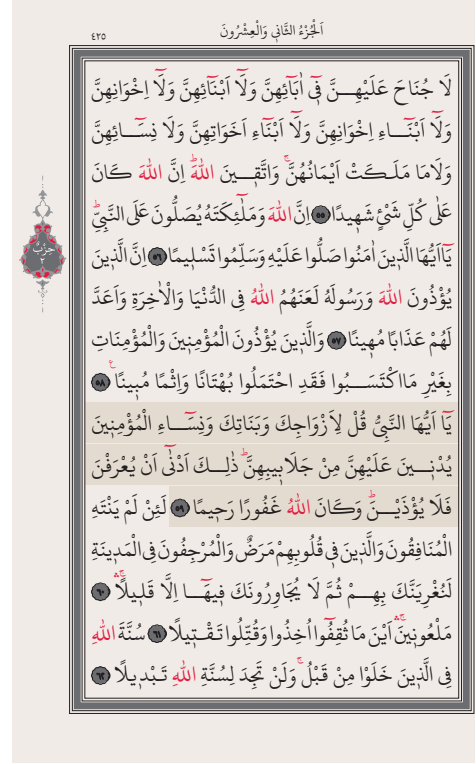 اَلْجُزْءُ الثَّانِي وَالْعِشْرُونَ
٤٢٥
لَا جُنَاحَ عَلَيْهِنَّ فِٓي اٰبَٓائِهِنَّ وَلَٓا اَبْنَٓائِهِنَّ وَلَٓا اِخْوَانِهِنَّ
وَلَٓا اَبْنَٓاءِ اِخْوَانِهِنَّ وَلَٓا اَبْنَٓاءِ اَخَوَاتِهِنَّ وَلَا نِسَٓائِهِنَّ
وَلَامَا مَلَكَتْ اَيْمَانُهُنَّۚ وَاتَّقِينَ اللهَۜ اِنَّ اللهَ كَانَ
عَلٰى كُلِّ شَيْءٍ شَهِيدًا ٥٥ اِنَّ اللهَ وَمَلٰٓئِكَتَهُ يُصَلُّونَ عَلَى النَّبِيِّۜ
يَٓااَيُّهَا الَّذِينَ اٰمَنُوا صَلُّوا عَلَيْهِ وَسَلِّمُوا تَسْلِيمًا ٥٦ اِنَّ الَّذِينَ
يُؤْذُونَ اللهَ وَرَسُولَهُ لَعَنَهُمُ اللهُ فِي الدُّنْيَا وَالْاٰخِرَةِ وَاَعَدَّ
لَهُمْ عَذَابًا مُهِينًا ٥٧ وَالَّذِينَ يُؤْذُونَ الْمُؤْمِنِينَ وَالْمُؤْمِنَاتِ
بِغَيْرِ مَااكْتَسَبُوا فَقَدِ احْتَمَلُوا بُهْتَانًا وَاِثْمًا مُبِينًا۟ ٥٨
يَٓا اَيُّهَا النَّبِيُّ قُلْ لِاَزْوَاجِكَ وَبَنَاتِكَ وَنِسَٓاءِ الْمُؤْمِنِينَ
يُدْنِينَ عَلَيْهِنَّ مِنْ جَلَابِيبِهِنَّۜ ذٰلِكَ اَدْنٰٓى اَنْ يُعْرَفْنَ
فَلَا يُؤْذَيْنَۜ وَكَانَ اللهُ غَفُورًا رَحِيمًا ٥٩ لَئِنْ لَمْ يَنْتَهِ
الْمُنَافِقُونَ وَالَّذِينَ فِي قُلُوبِهِمْ مَرَضٌ وَالْمُرْجِفُونَ فِي الْمَدِينَةِ
لَنُغْرِيَنَّكَ بِهِمْ ثُمَّ لَا يُجَاوِرُونَكَ فِيهَٓا اِلَّا قَلِيلًاۚۛ ٦٠
مَلْعُونِينَۚۛ اَيْنَ مَا ثُقِفُٓوا اُخِذُوا وَقُتِّلُوا تَقْتِيلًا ٦١ سُنَّةَ اللهِ
فِي الَّذِينَ خَلَوْا مِنْ قَبْلُۚ وَلَنْ تَجِدَ لِسُنَّةِ اللهِ تَبْدِيلًا ٦٢
حِزْبٌ
٢